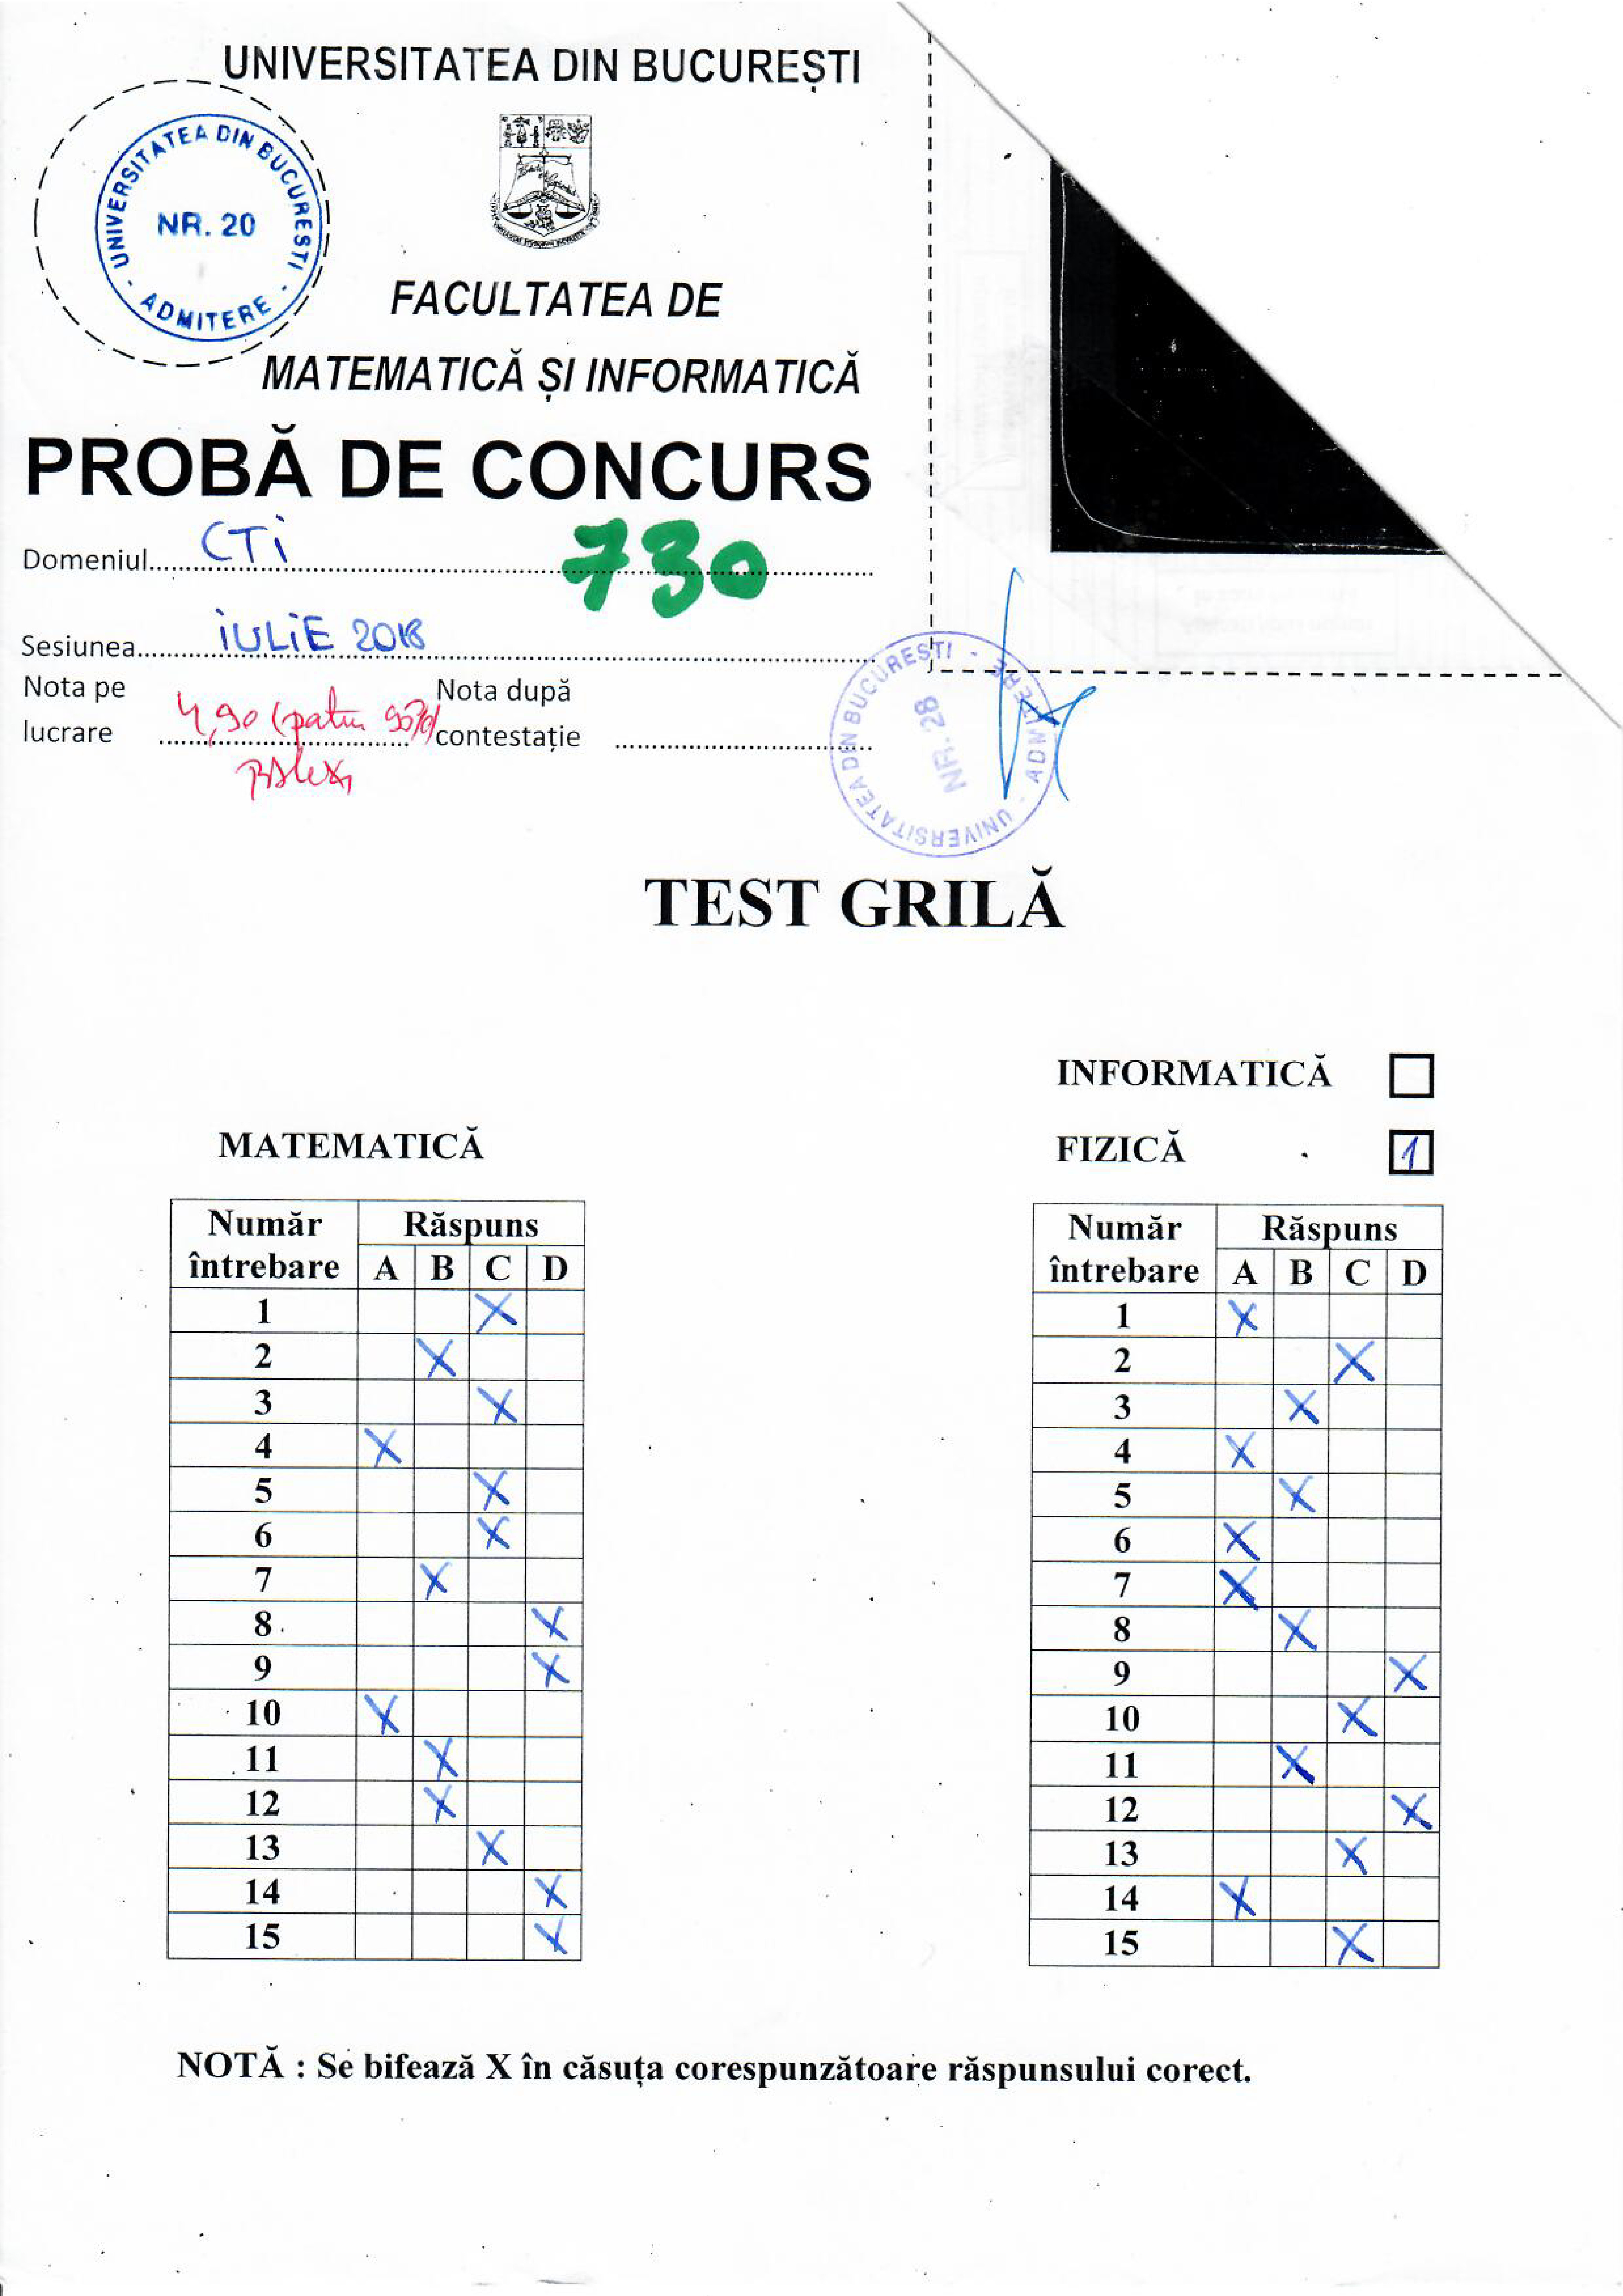 UNIVERSITATEA DIN BUCUREȘTI
UNIVERSITATEA DIN BUCURESTI - ADMITERE -
NR. 20
FACULTATEA DE
MATEMATICĂ ȘI INFORMATICĂ
PROBĂ DE CONCURS
Domeniul..... CTi 730
Sesiunea..... iULiE 2018
Nota pe lucrare 4,90 (patru 90%)
Nota după contestație
UNIVERSITATEA DIN BUCURESTI - ADMITERE -
NR. 28
TEST GRILĂ
INFORMATICĂ
FIZICĂ 1
MATEMATICĂ
Număr întrebare Răspuns
A B C D
1 X
2 X
3 X
4 X
5 X
6 X
7 X
8 X
9 X
10 X
11 X
12 X
13 X
14 X
15 X
Număr întrebare Răspuns
A B C D
1 X
2 X
3 X
4 X
5 X
6 X
7 X
8 X
9 X
10 X
11 X
12 X
13 X
14 X
15 X
NOTĂ : Se bifează X în căsuța corespunzătoare răspunsului corect.